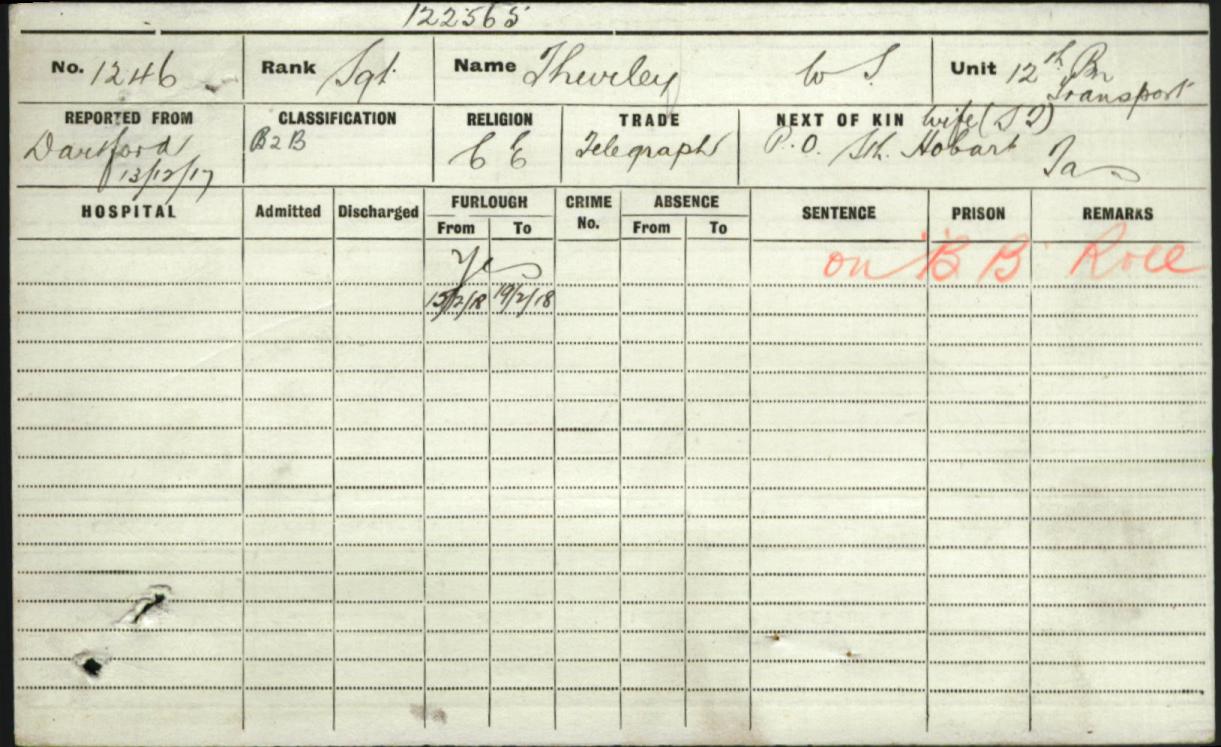 122565
No. 1246 Rank Sgt. Name Theveley W S Unit 12th Bn Transport
REPORTED FROM CLASSIFICATION RELIGION TRADE NEXT OF KIN wife
Dartford B2B C E Telegraphr P.O. Sth. Hobart Tas
13/12/17
HOSPITAL Admitted Discharged FURLOUGH CRIME No. ABSENCE SENTENCE PRISON REMARKS
From To From To
Yes on 'B B' Roll
15/2/18 19/2/18